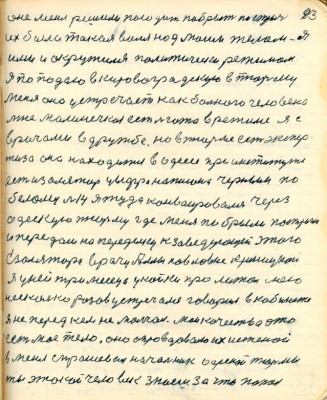 23
они меня решили посадить побрить постричь
их была такая воля под моим телом – я
ими и окружился политически режимом
Я попадаю в кировоградскую в тюрьму
меня оно встречает как больного человека
мне маленькая есть льгота в режиме я с
врачами в дружбе. но в тюрьме есть экспер-
тиза оно находится в одессе при институте
есть изолятор цифра написана черным по
белому я туда конвоировался через
одесскую тюрьму где меня побрыли постригли
и передали на передачу к заведующей этого
изолятора врачу Алли павловне
Я у ней три месяца у койки пролежал мого
несколько разов встречался говорил в кабинете
я не перед кем не молчал. мои качества это
есть мое тело, оно оправдовалось истеной
в меня спрашевал начальник одеской тюрьмы
ты этакой человек знаеш за что попал